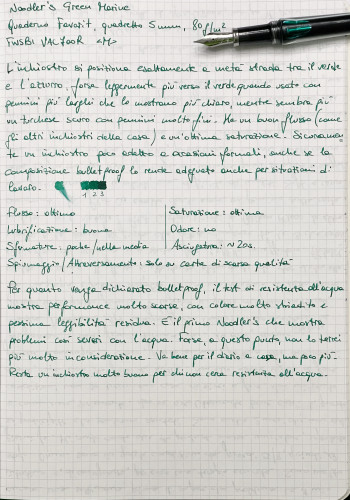 Noodler's Green Marine
Quaderno Favorit, quadretto 5mm, 80g/m²
TWSBI VAC700R <M>
L'inchiostro si posiziona esattamente a metà strada tra il verde
e l'azzurro, forse leggermente più verso il verde quando usato con
pennini più larghi che lo mostrano più chiaro, mentre sembra più
un turchese scuro con pennini molto fini. Ha un buon flusso (come
gli altri inchiostri della casa) e un'ottima saturazione. Sicuramen-
te un inchiostro poco adatto a occasioni formali, anche se la
composizione bulletproof lo rende adeguato anche per situazioni di
lavoro.
1 2 3
Flusso: ottimo
Saturazione: ottima
Lubrificazione: buona
Odore: no
Sfumature: poche/nella media
Asciugatura: ~20s.
Spiumaggio/Attraversamento: solo su carta di scarsa qualità
Per quanto venga dichiarato bulletproof, il test di resistenza all'acqua
mostra performance molto scarse, con colore molto sbiadito e
pessima leggibilità residua. È il primo Noodler's che mostra
problemi così severi con l'acqua. Forse, a questo punto, non lo terrei
più molto in considerazione. Va bene per il diario a casa, ma poco più.
Resta un inchiostro molto buono per chi non cerca resistenza all'acqua.